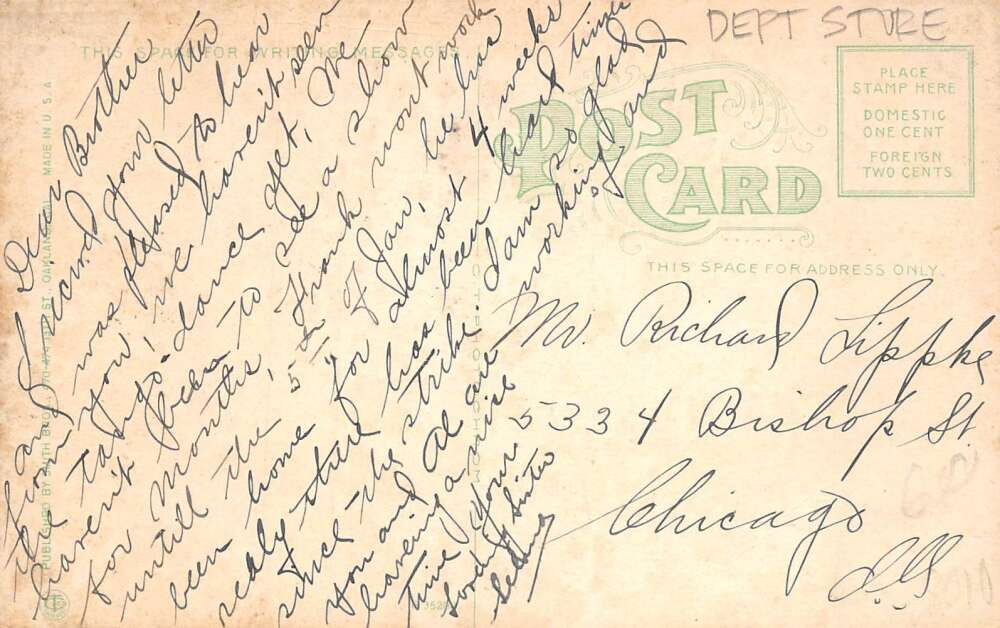 DEPT STORE
THIS SPACE FOR WRITING MESSAGES
POST
CARD
PLACE
STAMP HERE
DOMESTIC
ONE CENT
FOREIGN
TWO CENTS
THIS SPACE FOR ADDRESS ONLY.
MADE IN U.S.A
PUBLISHED BY
Dear Brother
I recived your letter
and was pleased to hear
from you, we havent seen
the tango dance yet, we
havent been to see a show
for months, Frank wont work
untill the 5th of Jan, he has
been home for almost 4 weeks
realy there has been hard times
since the strike. I am so glad
you and Al are working, and
haveing a nise
time your
loveing sister
Mr. Richard Lippke
5334 Bishop St.
Chicago
Ills